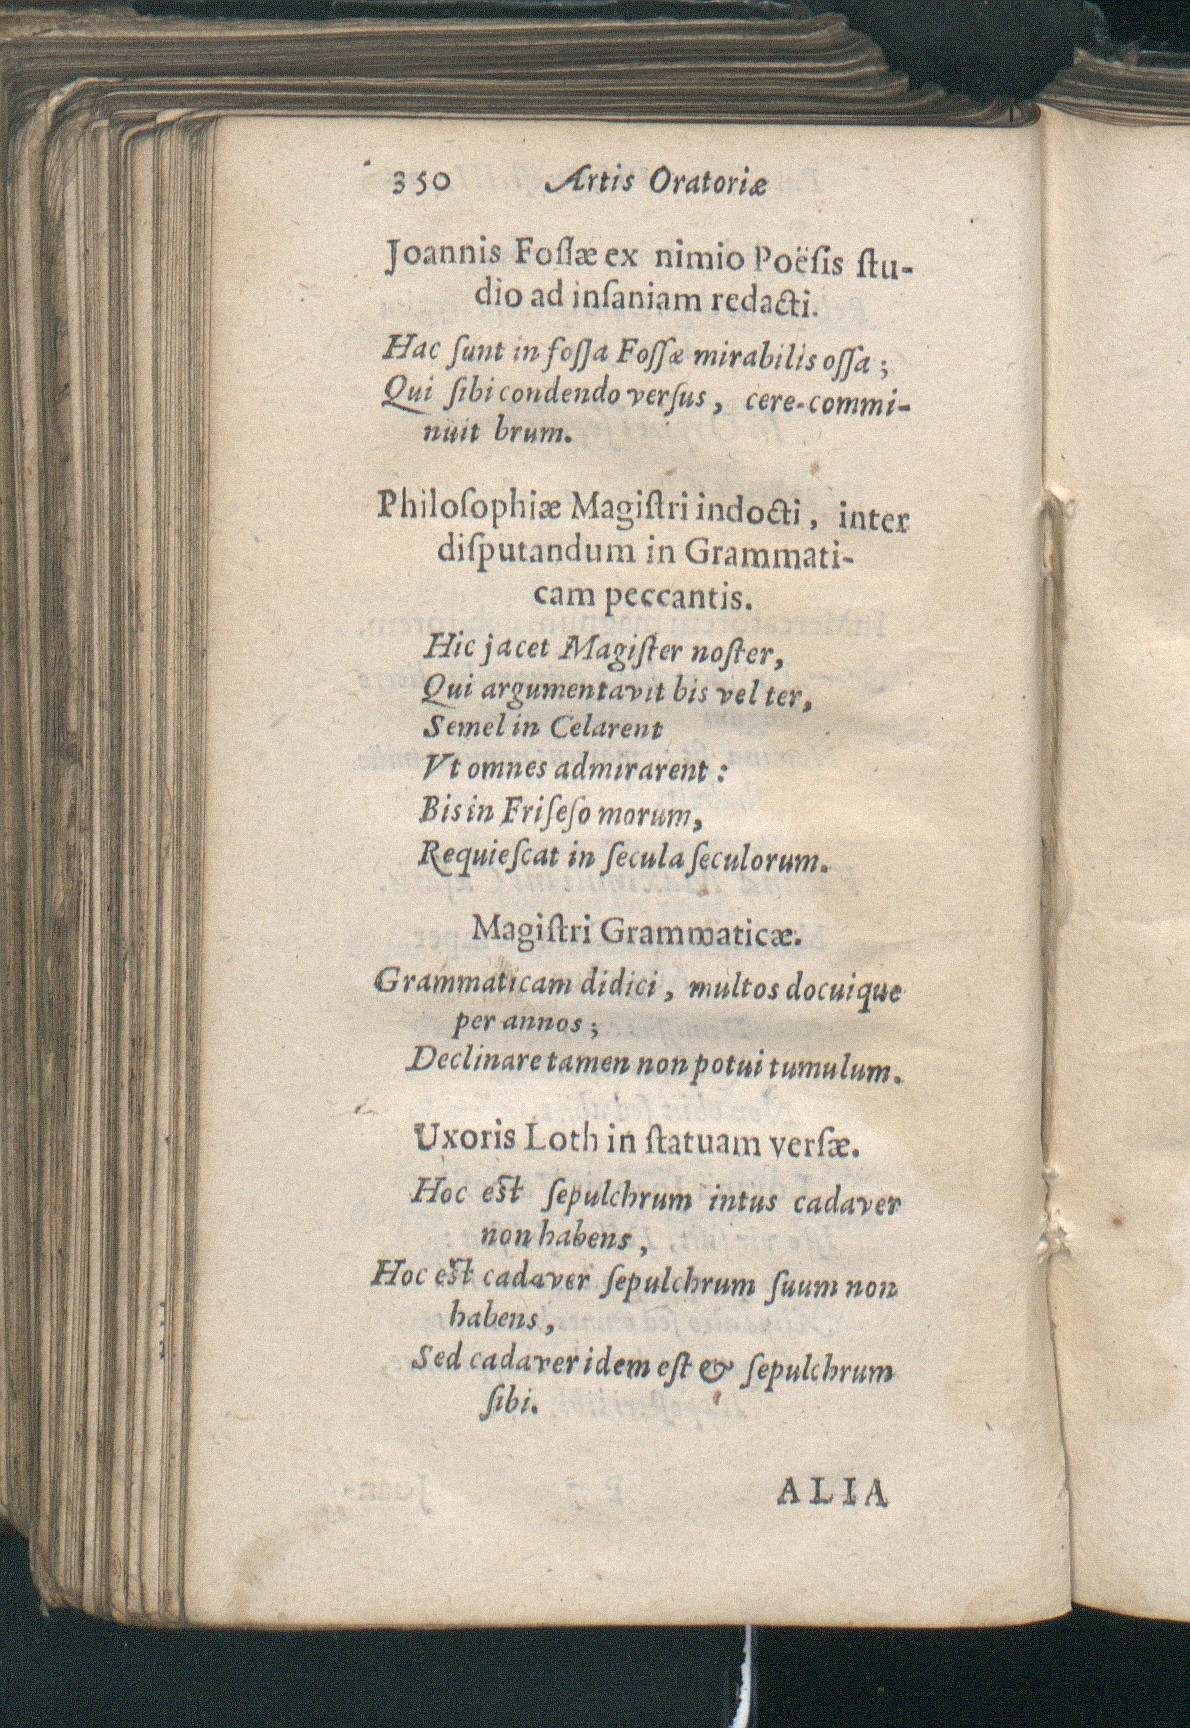 350 Artis Oratoriæ
Joannis Foſſæ ex nimio Poëſis ſtu-
dio ad inſaniam redacti.
Hac ſunt in foſſa Foſſæ mirabilis oſſa ;
Qui ſibi condendo verſus, cere-commi-
nuit brum.
Philoſophiæ Magiſtri indocti, inter
diſputandum in Grammati-
cam peccantis.
Hic jacet Magiſter noſter,
Qui argumentavit bis vel ter,
Semel in Celarent
Vt omnes admirarent :
Bis in Friſeſo morum,
Requieſcat in ſecula ſeculorum.
Magiſtri Grammaticæ.
Grammaticam didici, multos docuique
per annos ;
Declinare tamen non potui tumulum.
Uxoris Loth in ſtatuam verſæ.
Hoc eſt ſepulchrum intus cadaver
non habens,
Hoc eſt cadaver ſepulchrum ſuum non
habens,
Sed cadaver idem eſt & ſepulchrum
ſibi.
ALIA